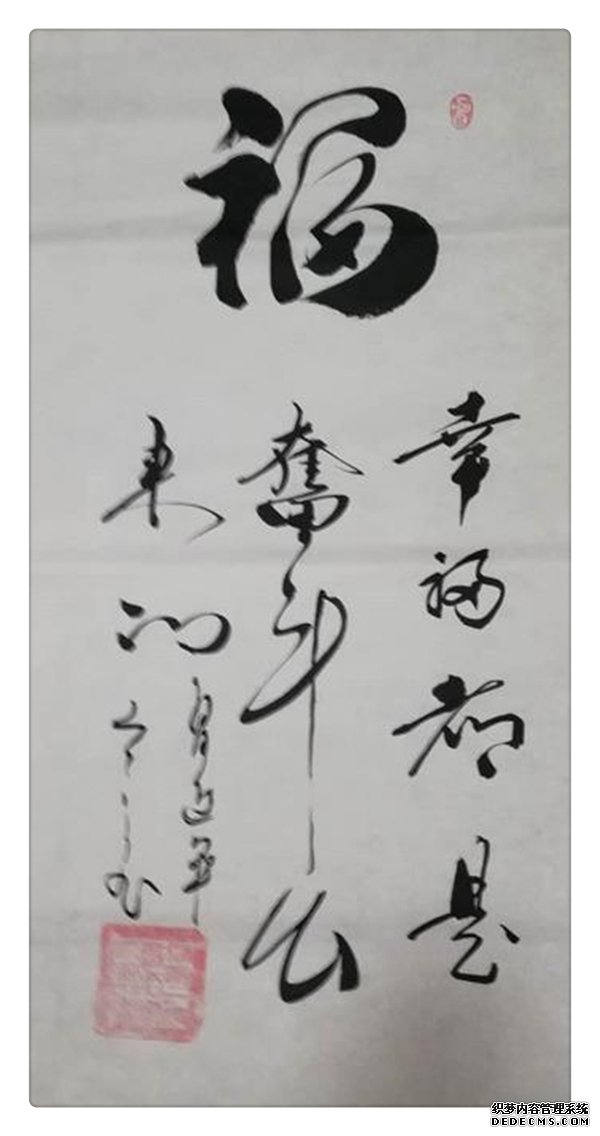 福
幸福都是
奮斗出
来的
织梦内容管理系统
DEDECMS.COM